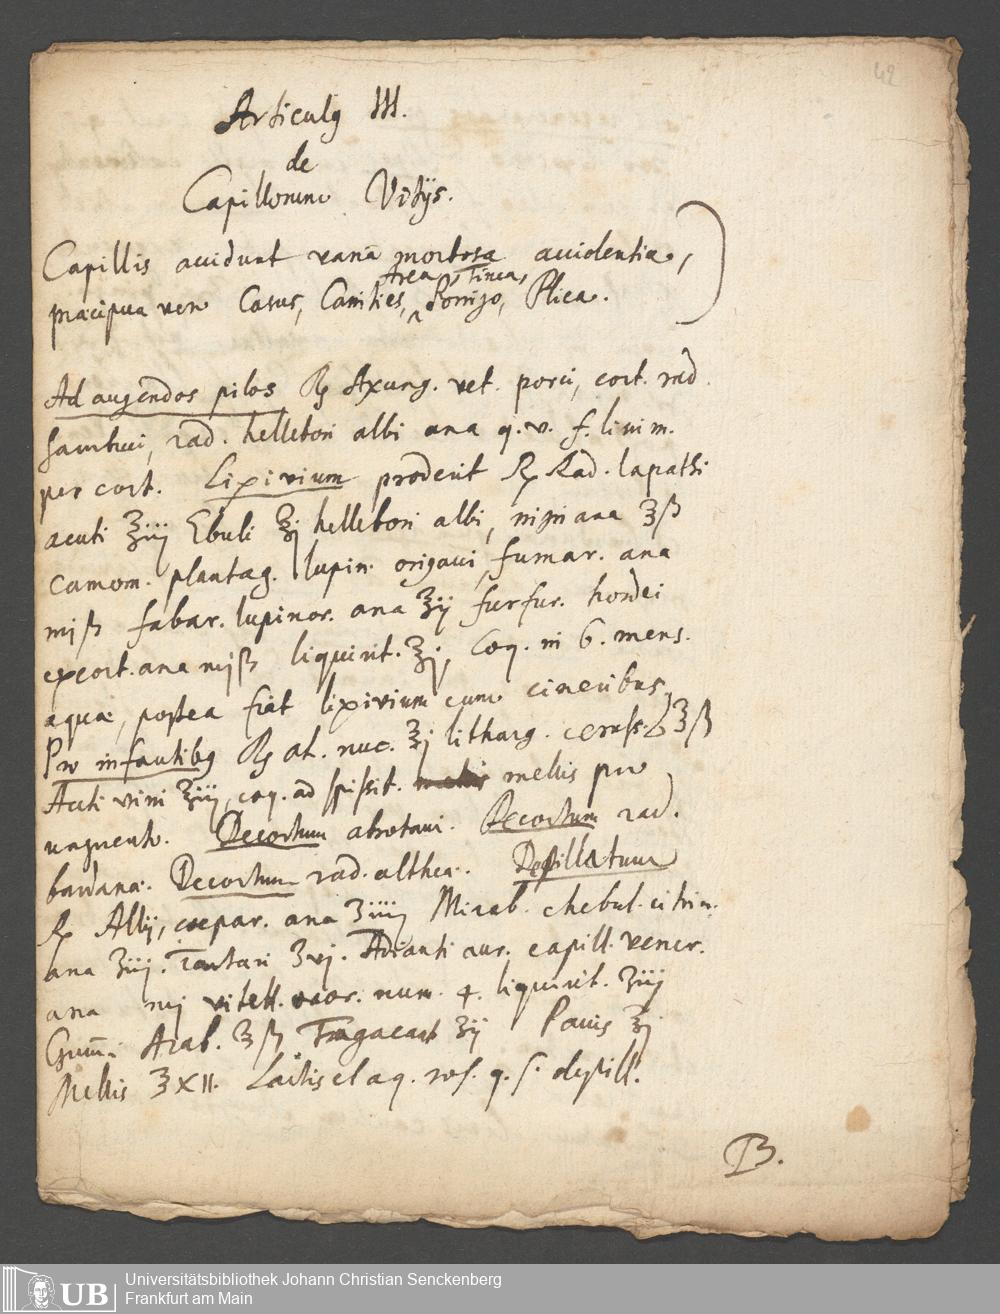 42
Articulus III.
de
Capillorum Vitijs.
Capillis accidunt varia morbosa accidentia,
Area, Tinea,
præcipua vero Casus, Canities, Porrigo, Plica.
Ad augendos pilos ℞ Axung. vet. porci, cort. rad.
sambuci, rad. hellebori albi ana q. v. f. linim.
per cort. Lixivium proderit ℞ Rad. lapathi
acuti ℥iiij Ebuli ℥j hellebori albi, nigri ana ℥ß
camom. plantag. lupin. origani, fumar. ana
mjß fabar. lupinor. ana ℥ij furfur. hordei
excort. ana mjß liquirit. ℥j, Coq. in 6. mens.
aquæ, postea fiat lixivium cum cineribus
Pro infantibus ℞ ol. nuc. ℥j litharg. ceruss. ℥ß
Aceti vini ℥iij, coq. ad spissit. mellis pro
unguento. Decoctum abrotani. Decoctum rad.
bardanæ. Decoctum rad. altheæ. Destillatum
℞ Allij, cepar. ana ℥iiij Mirab. chebul. citrin.
ana ℥iij. Tartari ℥vj. Adianti aur. capill. vener.
ana mj vitell. ovor. num. 4. liquirit. ℥iij
Gummi Arab. ℥ß Tragacant ℥ij Panis ℥j
Mellis ℥XII. Lactis et aq. ros. q. s. destill.
B.
UB
Universitätsbibliothek Johann Christian Senckenberg
Frankfurt am Main